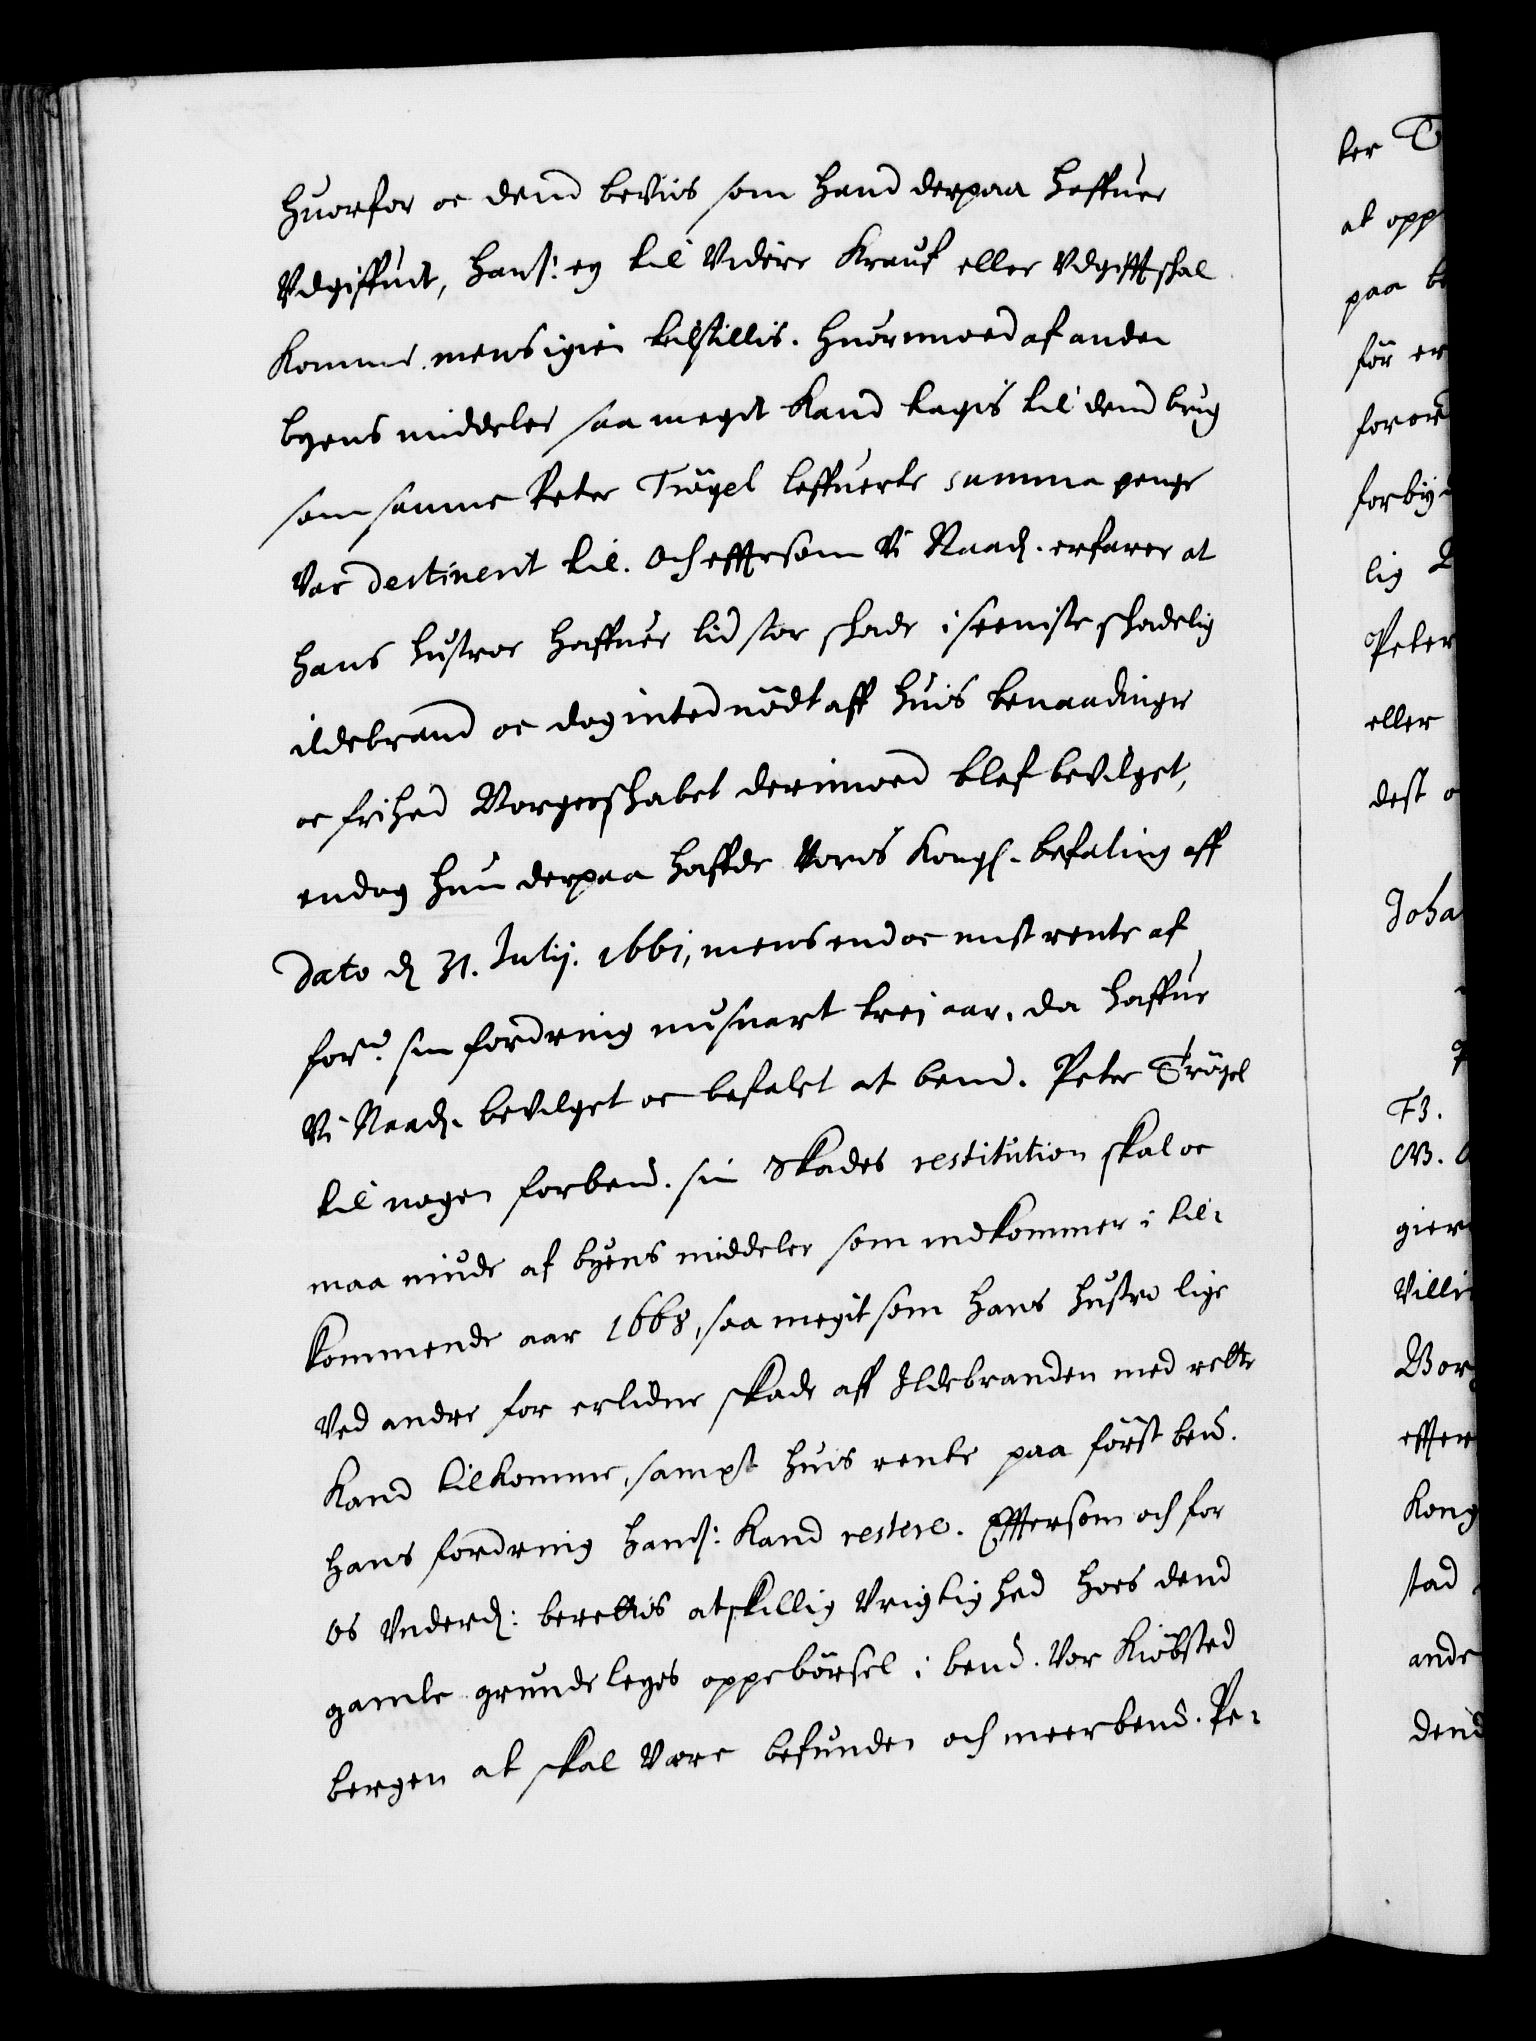 huorfor oc dend beviis som hand derpaa haffuer
Vdgiffuit, hans: ey til Videre Krauf eller Vdgifft skal
komme. mens igien tilstillis. Huornnoed af anden
byens middeler saa megit kand tagis til dend brug
som samme Peter Trögel leffuerte summa penge
Var destinerit til. Och efftersom Vi Naad. erfarer at
hans hustroe haffuer lid stor skade i seeniste skadelig
ildebrand oc dog inted nödt aff huis benaadinge
oc frihed Borgerskabet derimoed blef bevilget,
endog hun derpaa hafde Voris Kongl. befaling aff
Dato d. 31. Julij. 1661, mens end oc mist rente af
for: sin fordring nu snart trei aar. da haffue
Vi Naad. bevilget oc befalet at bemd. Peter Trögel
til nogen forbemd. sin Skades restitution skal oc
maa niude af byens middeler som indkommer i til-
kommende aar 1668, saa megit som hans hustro lige
Ved andre for erlidne skade aff Ildebranden med rette
kand tilkomme, sampt huis rente paa först bemd.
hans fordring hands: kand restere. Efftersom och for
os Vnderd: berettis atskillig Vrigtighed hoes dend
gamle grundeleyes oppebörsel i bemd. Vor Kiöbsted
bergen at skal Være befunden och meerbemd. Pe-
ter
at opp
paa
för er
foror
forby
lig
Peter
eller
dest
Joha
gier
Villi
Bor
effter
Kong
stad
ande
dend